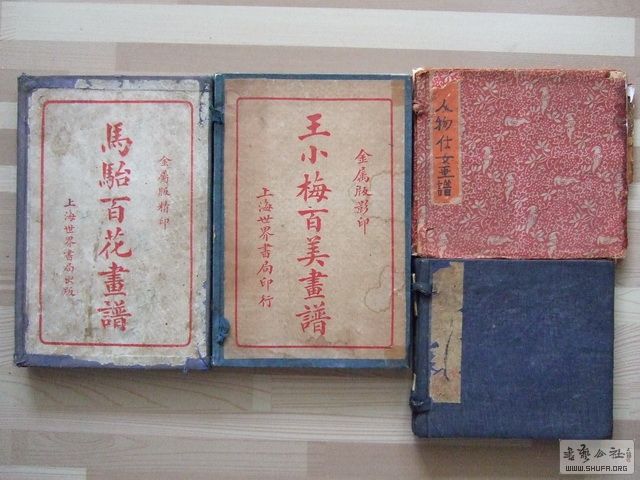 金屬版精印
馬駘百花畫譜
上海世界書局出版
金属版影印
王小梅百美畫譜
上海世界書局印行
人物仕女画譜
書藝公社
WWW.SHUFA.ORG